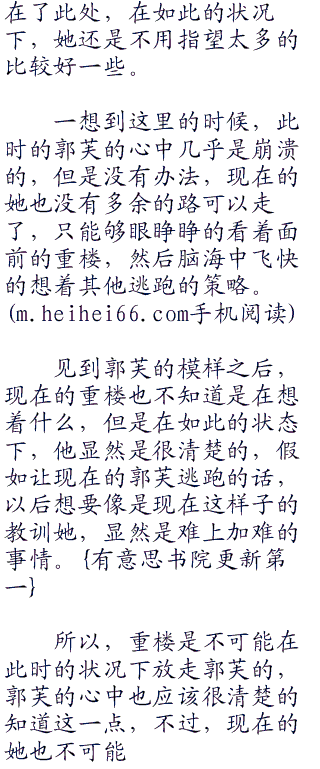 在了此处，在如此的状况
下，她还是不用指望太多的
比较好一些。
一想到这里的时候，此
时的郭芙的心中几乎是崩溃
的，但是没有办法，现在的
她也没有多余的路可以走
了，只能够眼睁睁的看着面
前的重楼，然后脑海中飞快
的想着其他逃跑的策略。
(m.heihei66.com手机阅读)
见到郭芙的模样之后，
现在的重楼也不知道是在想
着什么，但是在如此的状态
下，他显然是很清楚的，假
如让现在的郭芙逃跑的话，
以后想要像是现在这样子的
教训她，显然是难上加难的
事情。{有意思书院更新第
一}
所以，重楼是不可能在
此时的状况下放走郭芙的，
郭芙的心中也应该很清楚的
知道这一点，不过，现在的
她也不可能